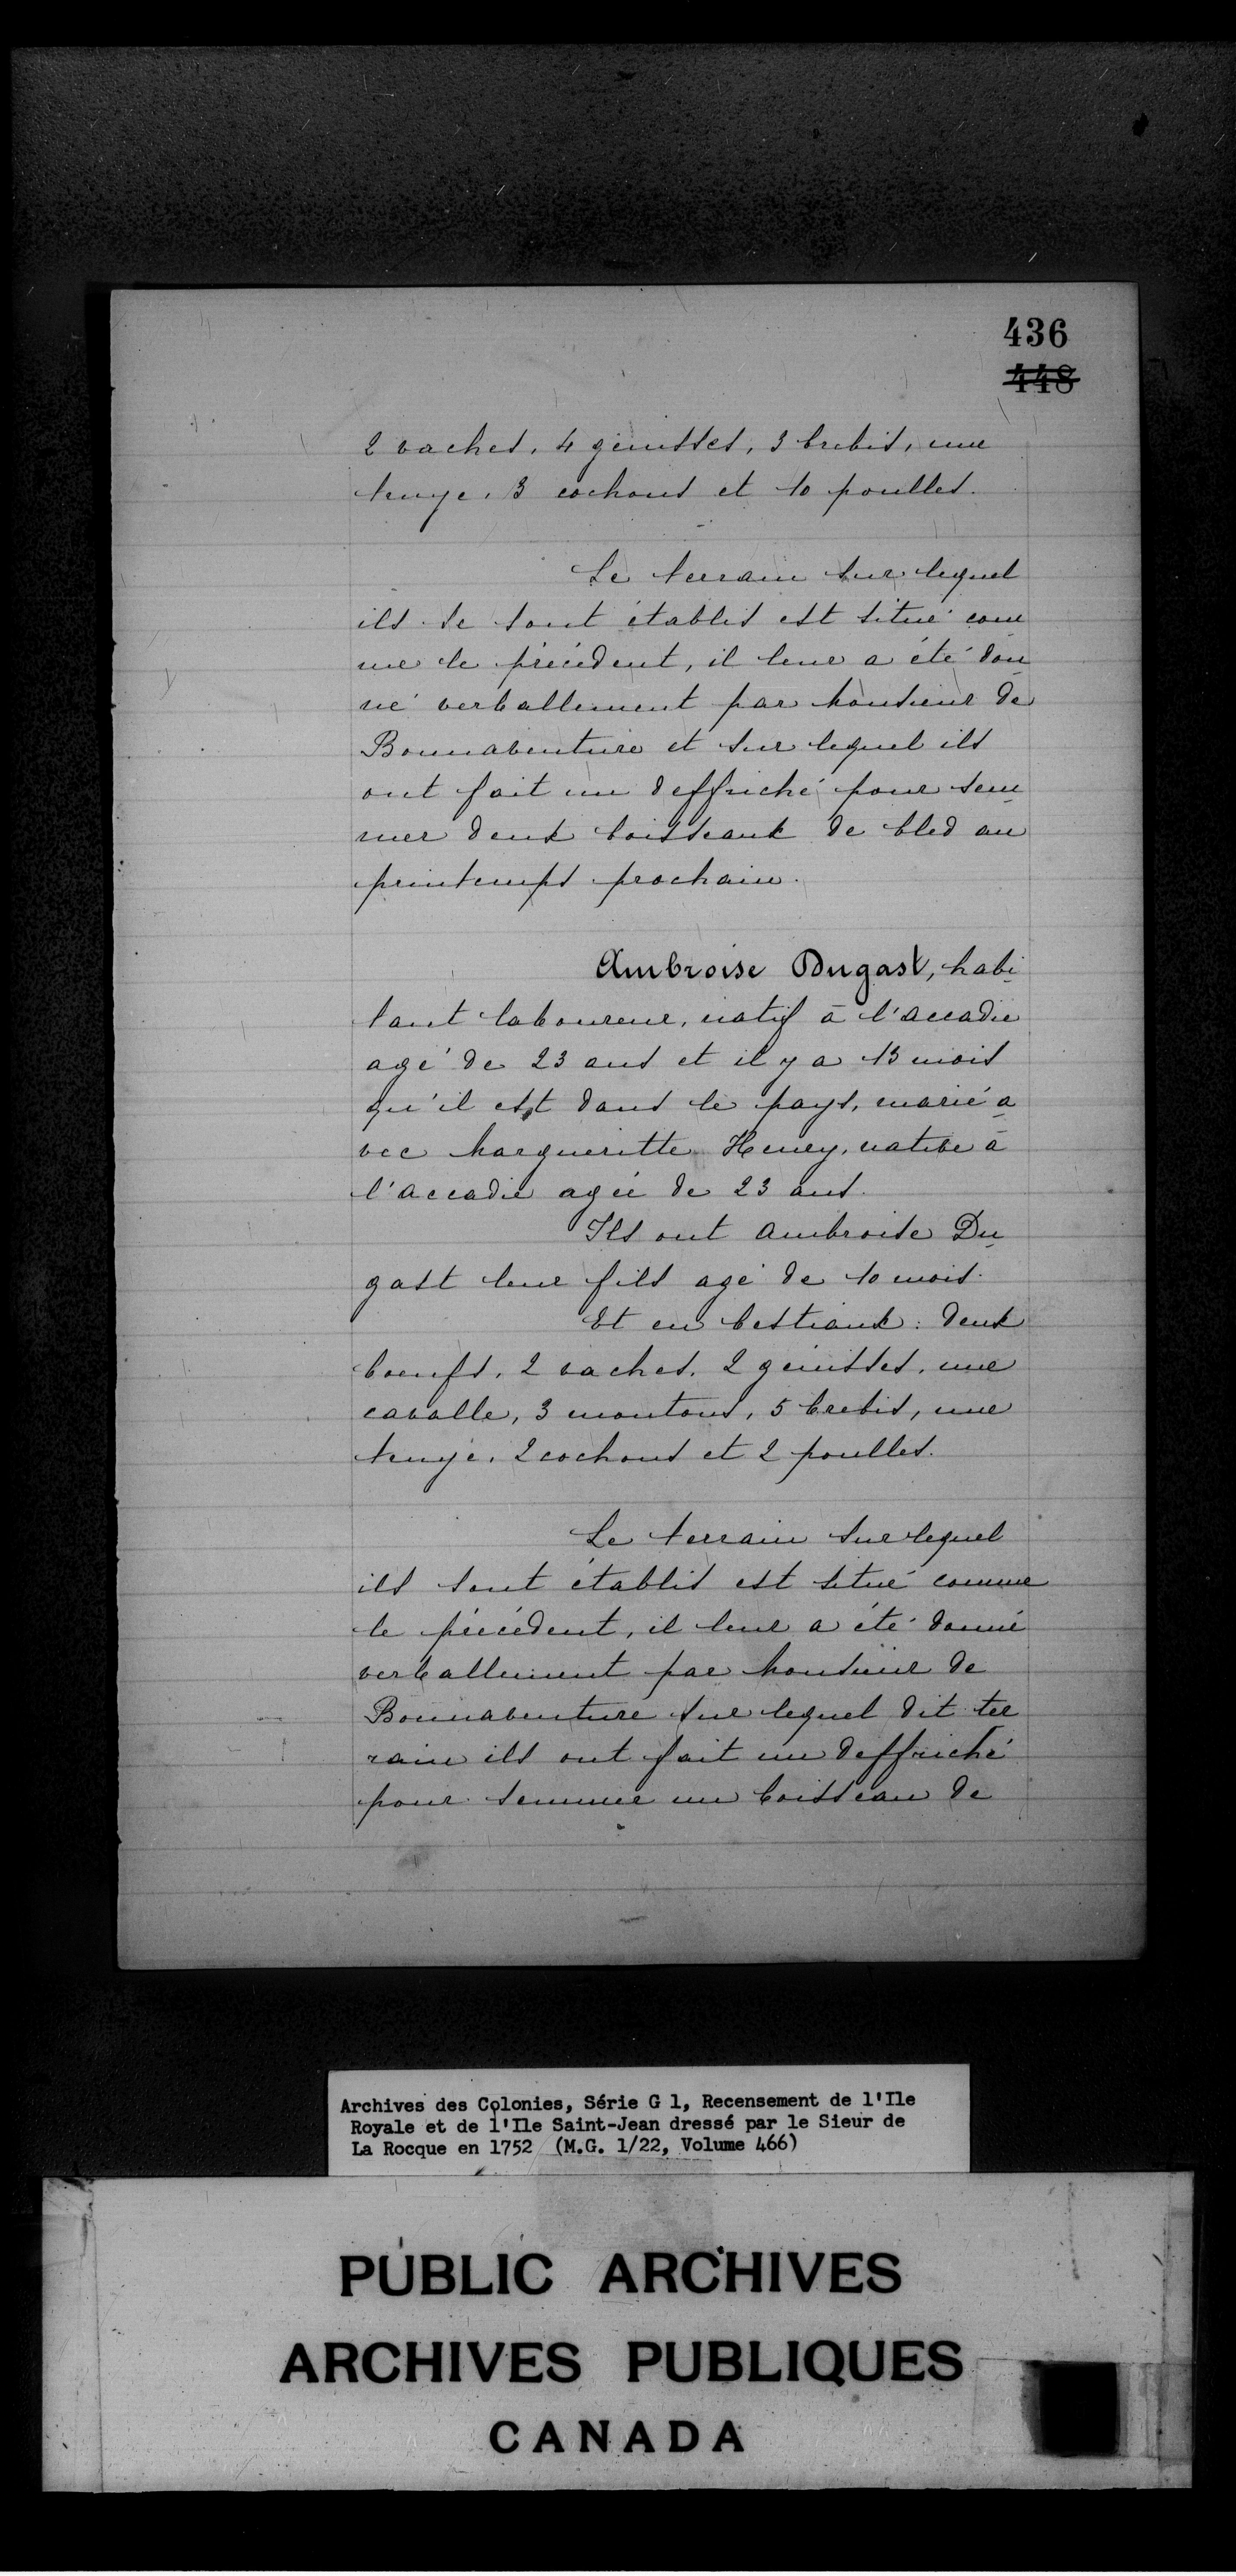 436
448
2 vaches, 4 genisses, 3 brebis, une
truye, 3 cochons et 10 poulles.
Le terrain sur lequel
ils se sont établis est situé com
me le précédent, il leur a été don
né verballement par Monsieur de
Bonnaventure et sur lequel ils
ont fait un deffriché pour sem
mer deux boisseaux de bled au
printemps prochain.
Ambroise Dugast, habi
tant laboureur, natif à l'accadie
agé de 23 ans et il y a 13 mois
qu'il est dans le pays, marié a
vec Margueritte Henry, native à
l'accadie agée de 23 ans.
Ils ont Ambroise Du
gast leur fils agé de 10 mois.
Et en bestiaux : deux
boeufs, 2 vaches, 2 génisses, une
cavalle, 3 moutons, 5 brebis, une
truye, 2 cochons et 2 poulles.
Le terrain sur lequel
ils sont établis est situé comme
le précédent, il leur a été donné
verballement par Monsieur de
Bonnaventure sur lequel dit ter
rain ils ont fait un deffriché
pour semmer un boisseau de
Archives des Colonies, Série G 1, Recensement de l'Ile
Royale et de l'Ile Saint-Jean dressé par le Sieur de
La Rocque en 1752 (M.G. 1/22, Volume 466)
PUBLIC ARCHIVES
ARCHIVES PUBLIQUES
CANADA